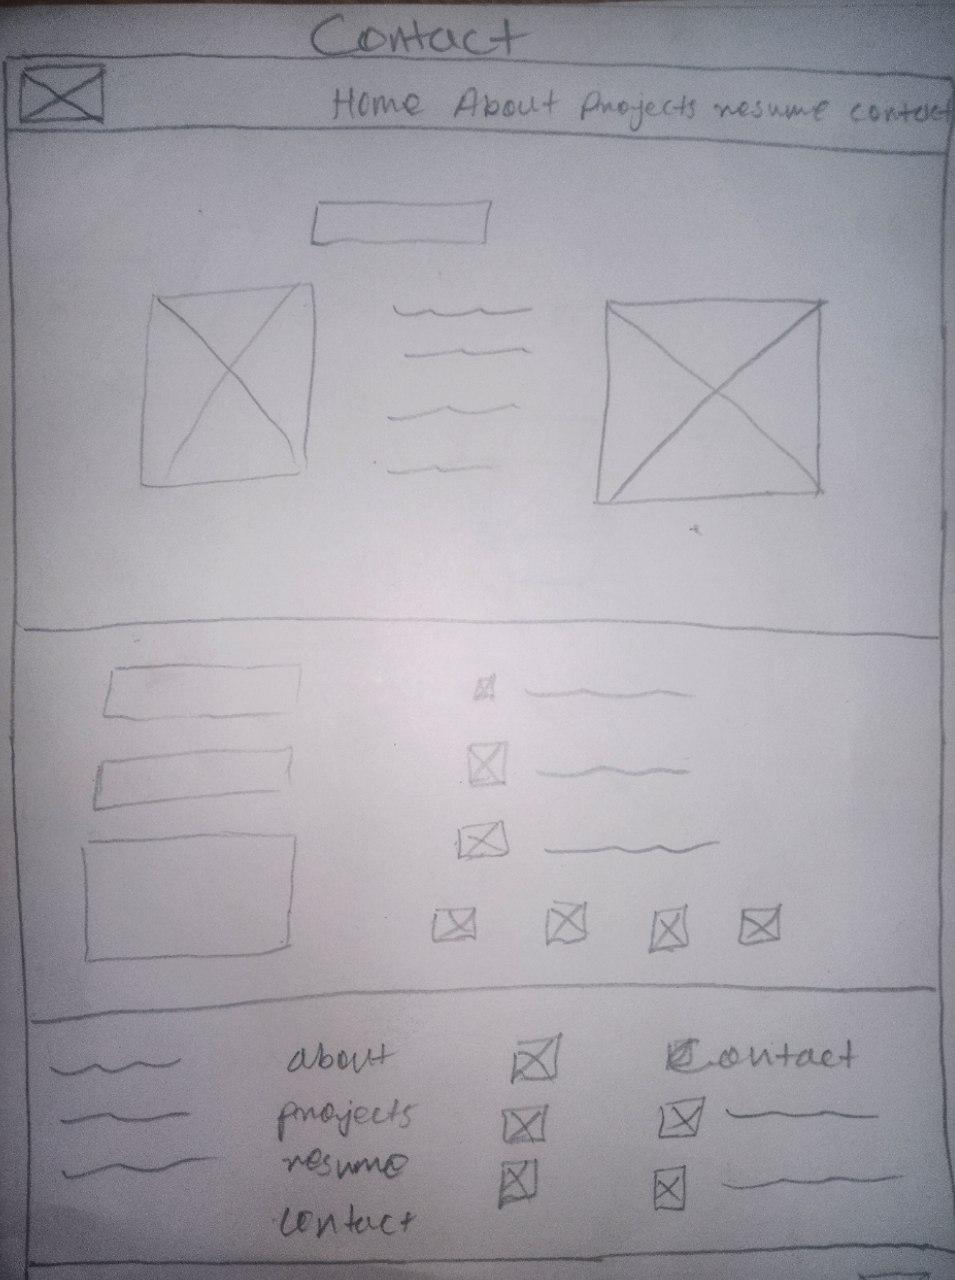 Contact
Home About projects resume contact
about
projects
resume
contact
Contact